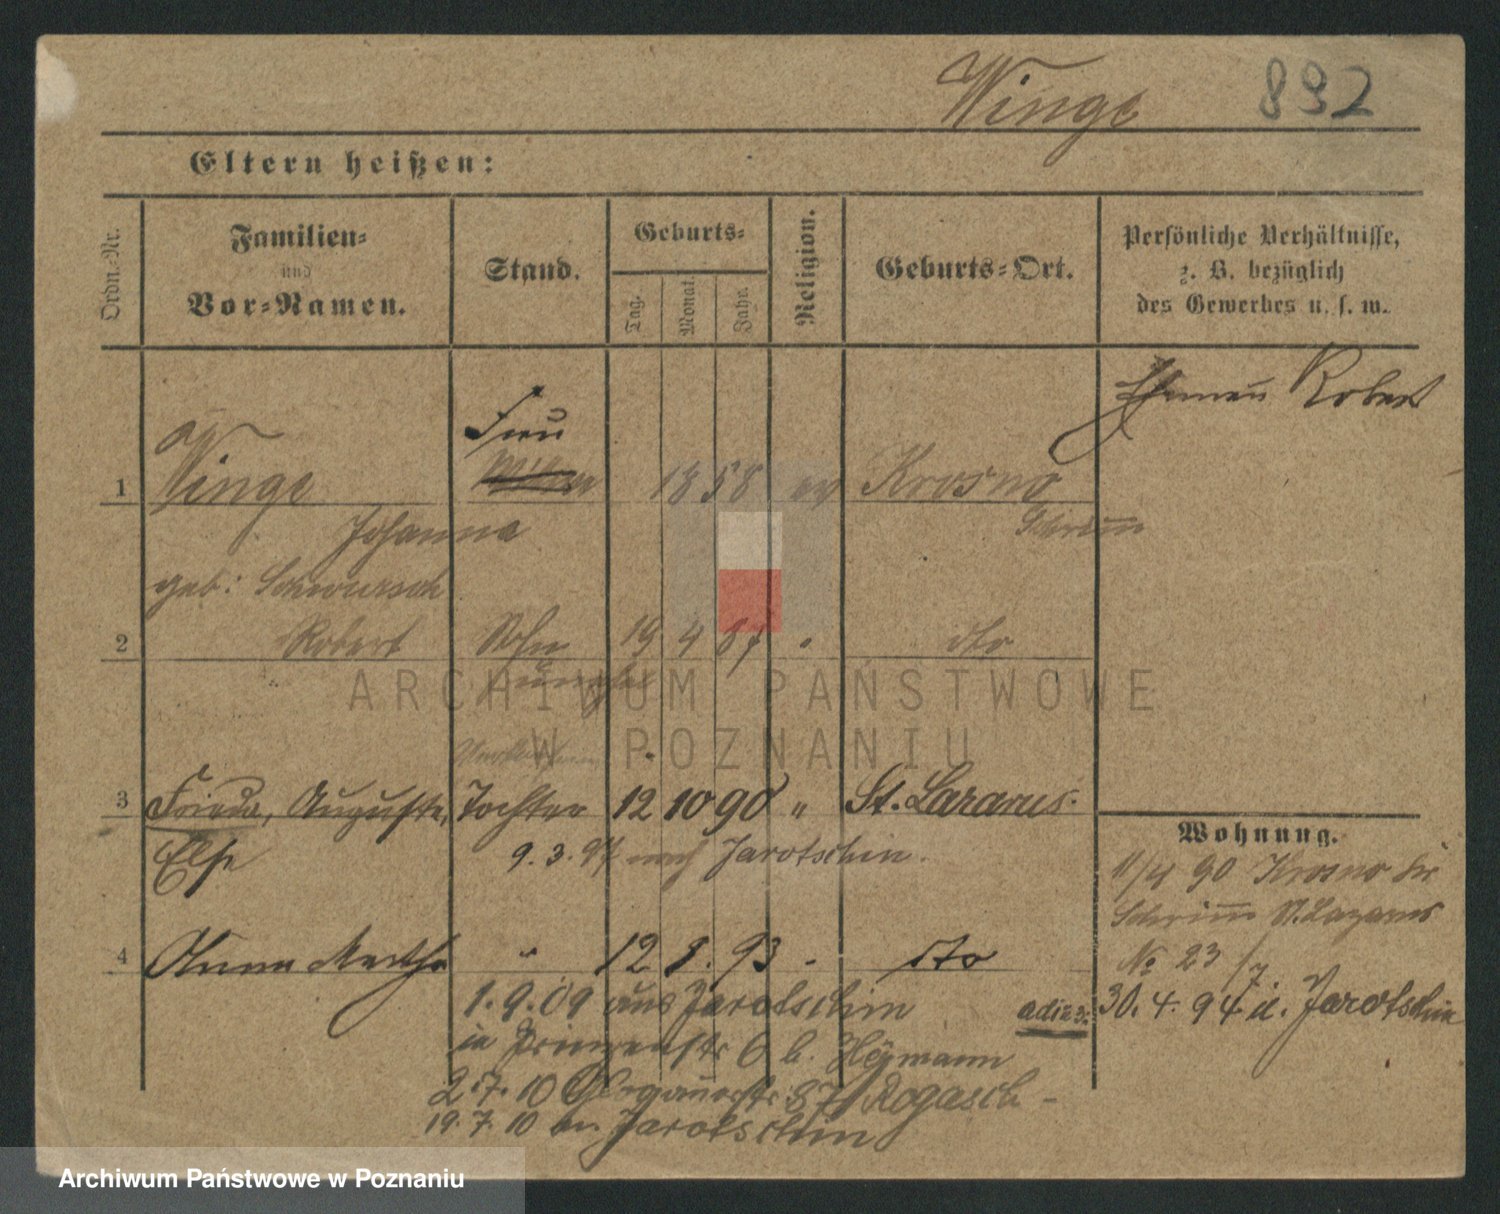 Winge 892
Eltern heißen:
Ordn.-Nr.
Familien-
und
Vor-Namen.
Stand.
Geburts-
Tag.
Monat.
Jahr.
Religion.
Geburts-Ort.
Persönliche Verhältnisse,
z. B. bezüglich
des Gewerbes u. s. w.
Robert
Frau
1 Winge 1858 ev Krosno
Johanna Schrimm
geb:
2 Robert Sohn 19 4 87 " dto
3 Frieda, Auguste, Tochter 12 10 90 " St. Lazarus.
Else 9. 3. 97 nach Jarotschin.
4 Anna Martha " 12 8. 93 " dto
1. 9. 09 aus Jarotschin
in Prinzenstr 6 b. Heymann
2. 7. 10 Glogauerstr. 87 Rogasch
19. 7. 10 Jarotschin
Wohnung.
11/4 90 Krosno Kr
Schrimm St. Lazarus
No 23
30. 4. 94 Jarotschin
ARCHIWUM PAŃSTWOWE
W POZNANIU
Archiwum Państwowe w Poznaniu